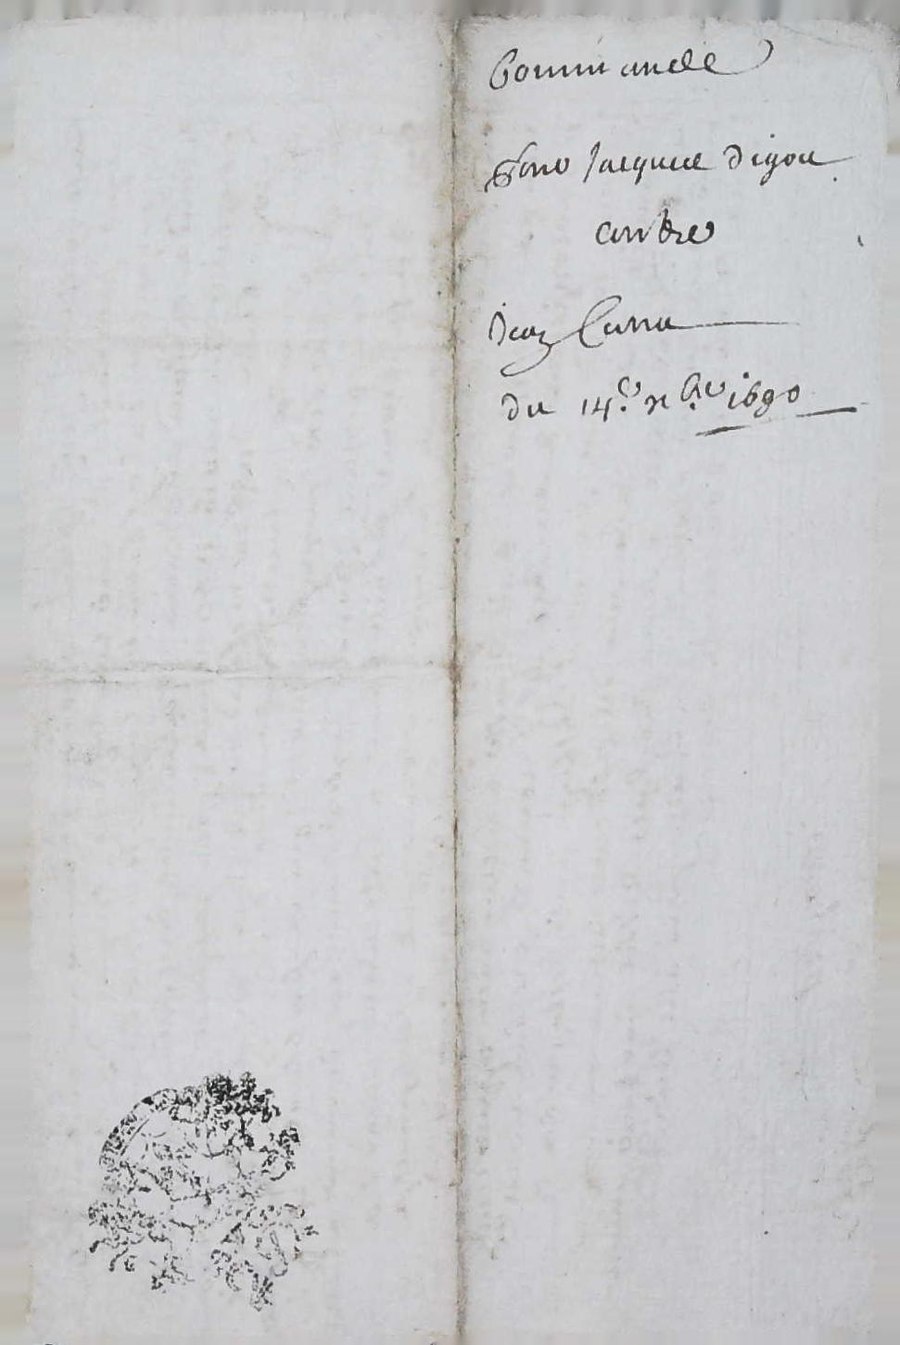 Commande
pour Jacques Digou
contre
Jean Carra
du 14e xbre 1690